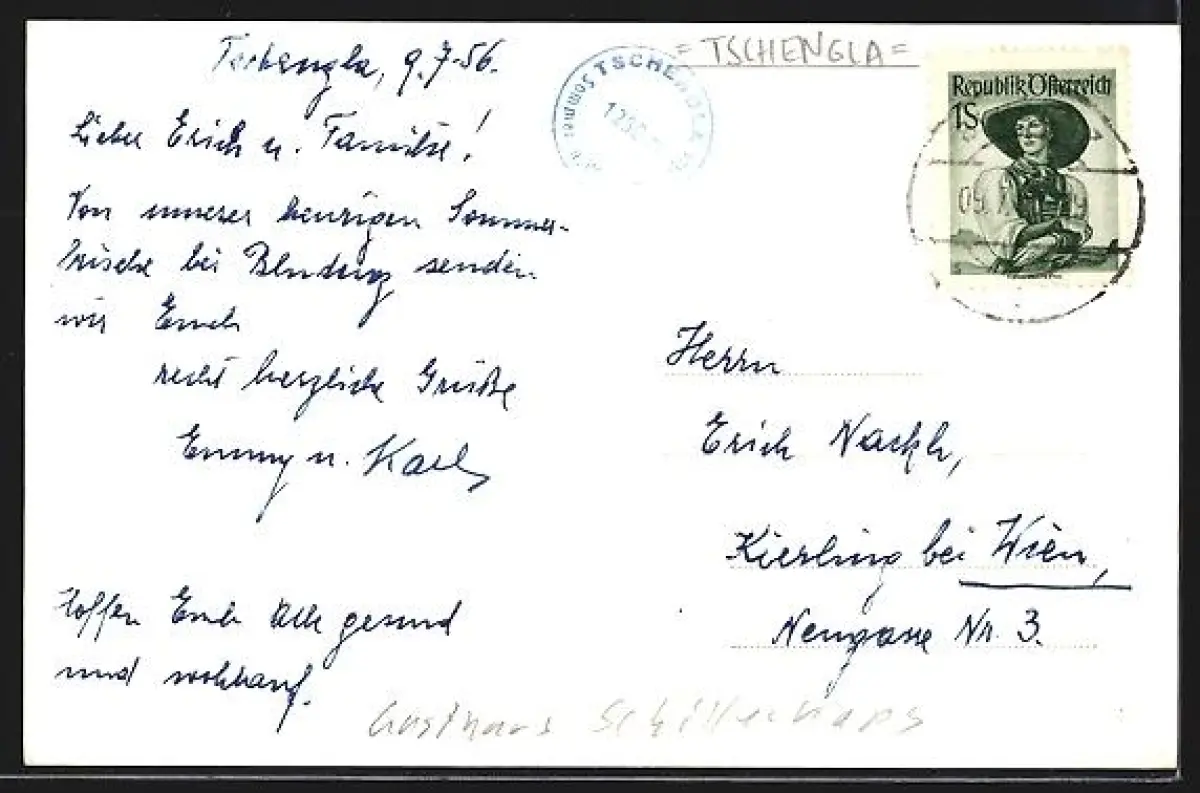 Tschengla, 9.7.56.
Lieber Erich u. Familie!
Von unserer heurigen Sommer-
frische bei Bludenz senden
wir Euch
recht herzliche Grüße
Emmy u. Karl
Hoffen Euch Alle gesund
und wohlauf.
TSCHENGLA
Sommer
= TSCHENGLA =
Republik Österreich
1S
Herrn
Erich Nackh,
Kierling bei Wien,
Neugasse Nr. 3.
Gasthaus Schillerkopf